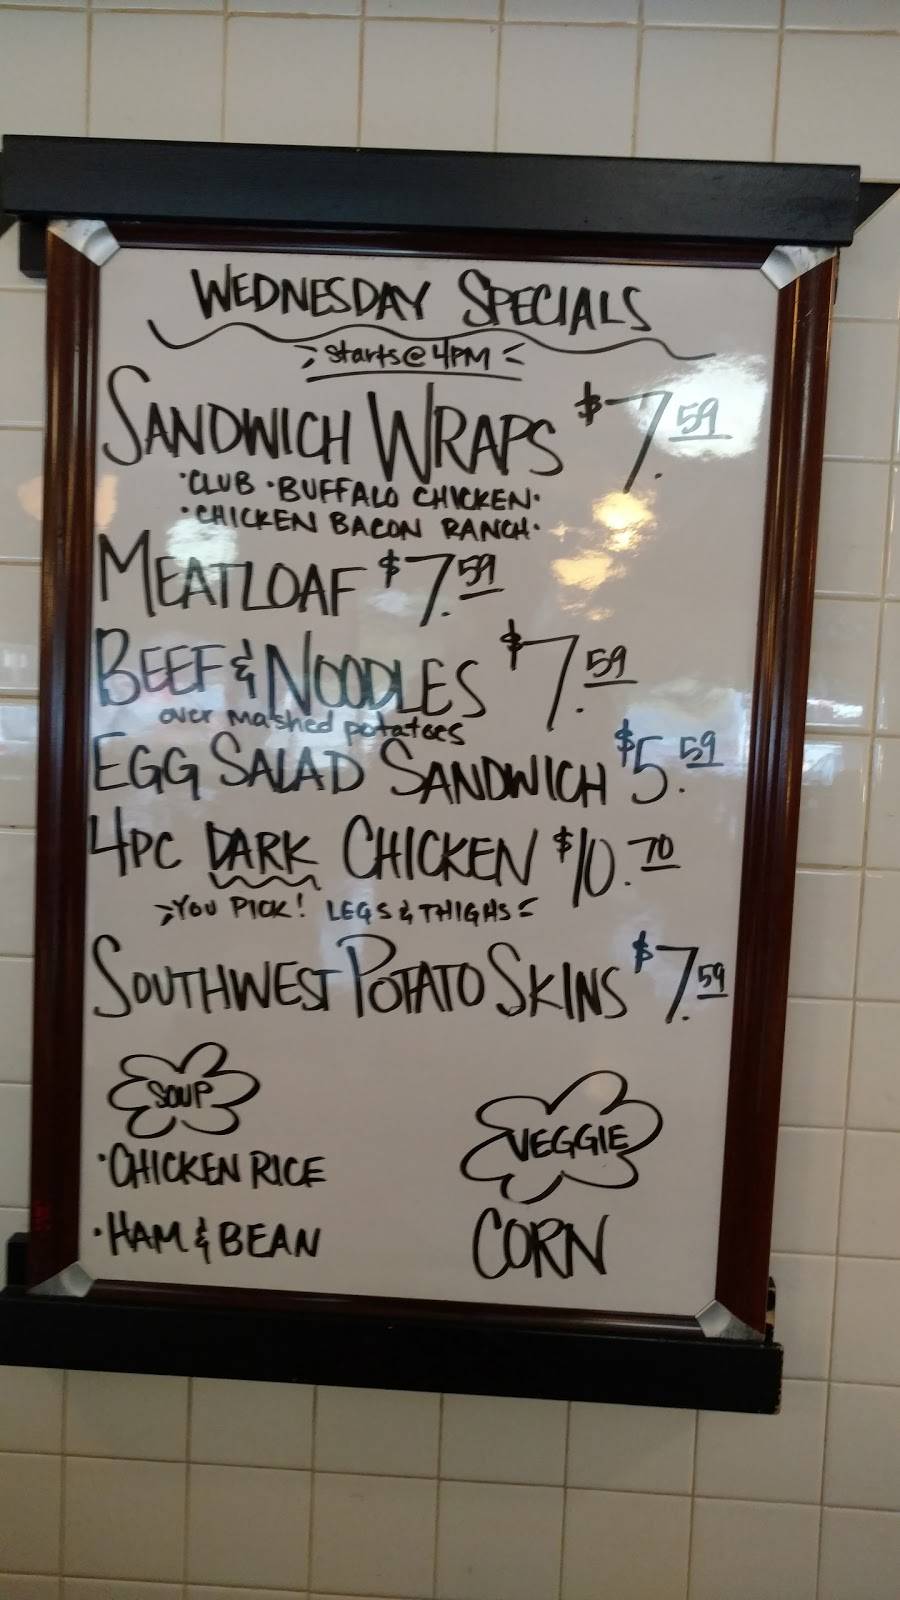 WEDNESDAY SPECIALS
Starts@4PM
SANDWICH WRAPS $7.59
·CLUB ·BUFFALO CHICKEN·
·CHICKEN BACON RANCH·
MEATLOAF $7.59
BEEF & NOODLES $7.59
over mashed potatoes
EGG SALAD SANDWICH $5.59
4PC DARK CHICKEN $10.70
YOU PICK! LEGS & THIGHS
SOUTHWEST POTATO SKINS $7.59
SOUP
·CHICKEN RICE
·HAM & BEAN
VEGGIE
CORN